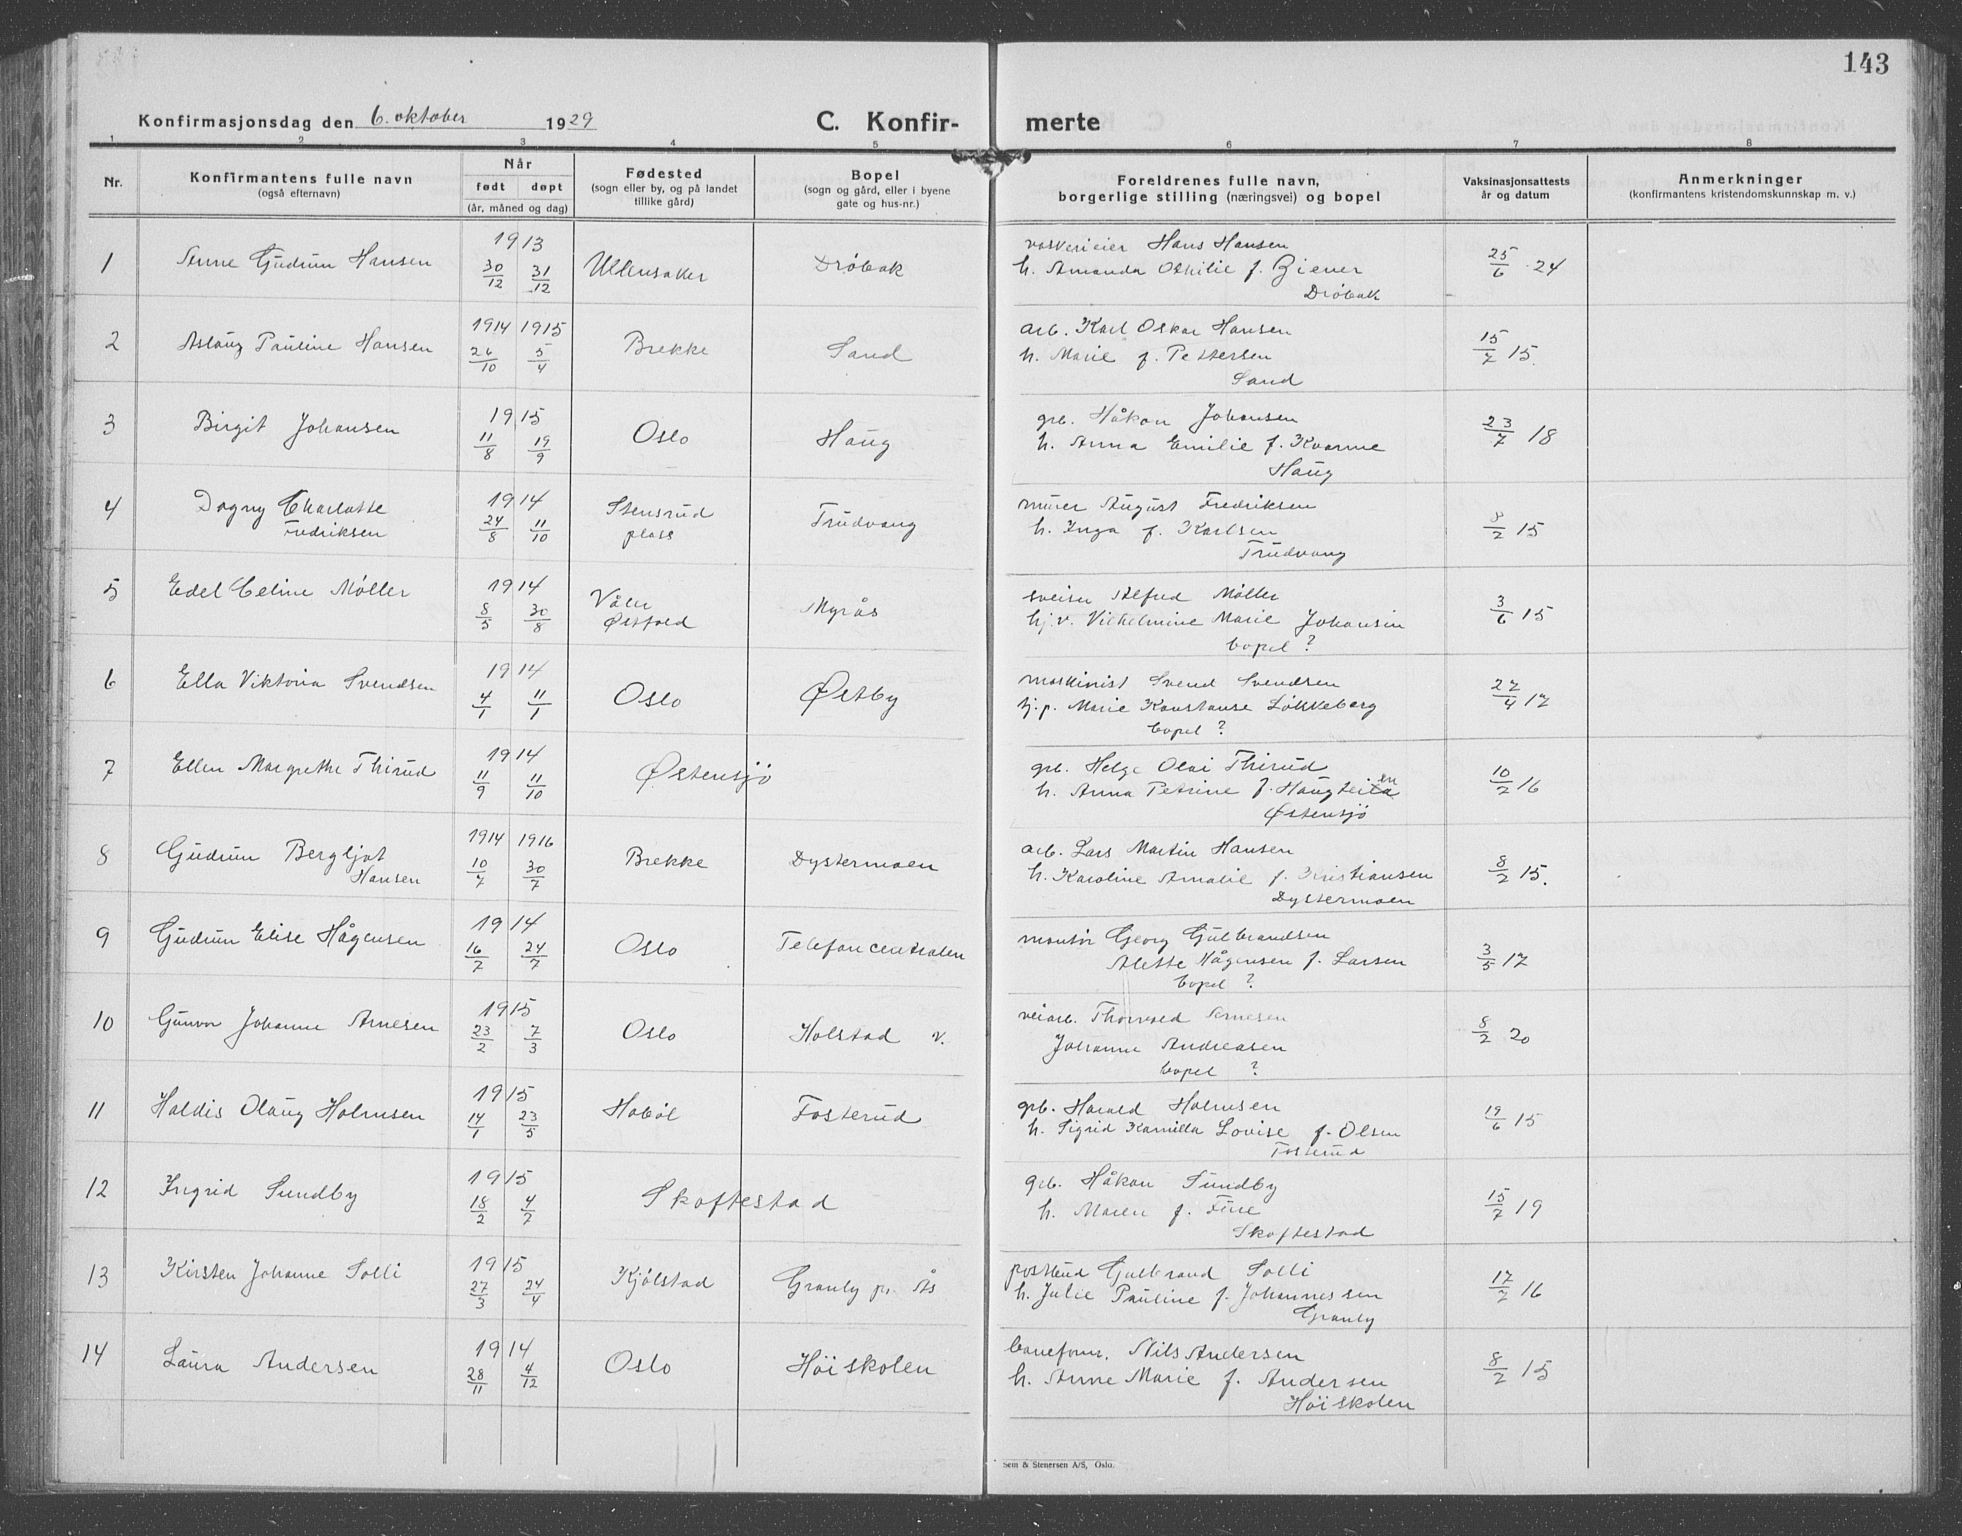 143
Konfirmasjonsdag den 6. oktober 1929 C. Konfir- merte
1 2 3 4 5 6 7 8
Nr. Konfirmantens fulle navn (også efternavn) Når født døpt (år, måned og dag) Fødested (sogn eller by, og på landet tillike gård) Bopel (sogn og gård, eller i byene gate og hus-nr.) Foreldrenes fulle navn, borgerlige stilling (næringsvei) og bopel Vaksinasjonsattests år og datum Anmerkninger (konfirmantens kristendomskunnskap m. v.)
1 Anne Gudrun Hansen 1913 30/12 31/12 Ullensaker Drøbak
vaskerieier Hans Hansen
h. Amanda Othilie f. Ziener
Drøbak
25/6 24
2 Aslaug Pauline Hansen 1914 26/10 1915 5/4 Brekke Sand
arb. Karl Oskar Hansen
h. Marie f. Pettersen
Sand
15/7 15.
3 Birgit Johansen 1915 11/8 19/9 Oslo Haug
grb. Håkon Johansen
h. Anna Emilie f. Kvarme
Haug
23/7 18
4 Dagny Charlotte Fredriksen 1914 24/8 11/10 Stensrud plass Trudvang
murer August Fredriksen
h. Inga f. Karlsen
Trudvang
8/2 15
5 Edel Celine Møller 1914 8/5 30/8 Våler Østfold Myrås
sveiser Alfred Møller
hj.v. Vilhelmine Marie Johansen
bopel ?
3/6 15
6 Ella Viktoria Svendsen 1914 4/1 11/1 Oslo Østby
maskinist Svend Svendsen
tj.p. Marie Konstanse Løkkeberg
bopel ?
27/4 17
7 Ellen Margrethe Thirud 1914 11/9 11/10 Østensjø
grb. Helge Olai Thirud
h. Anna Petrine f.
Østensjø
10/2 16
8 Gudrun Bergljot Hansen 1914 10/7 1916 30/7 Brekke Dystermoen
arb. Lars Martin Hansen
h. Karoline Amalie f. Kristiansen
Dystermoen
8/2 15.
9 Gudrun Elise Hågensen 1914 16/7 24/7 Oslo Telefoncentralen
montør Georg Gulbrandsen
Alette Hågensen f. Larsen
bopel ?
3/5 17
10 Gunvor Johanne Arnesen 1915 23/2 7/3 Oslo Holstad v.
veiarb. Thorvald Arnesen
Johanne Andreasen
bopel ?
8/2 20
11 Haldis Olaug Holmsen 1915 14/1 23/5 Hobøl Fosterud
grb. Harald Holmsen
h. Sigrid Kamilla Lovise f. Olsen
Fosterud
19/6 15
12 Ingrid Sundby 1915 18/2 4/7 Skoftestad
grb. Håkon Sundby
h. Maren f.
Skoftestad
15/7 19
13 Kirsten Johanne Solli 1915 27/3 24/4 Kjølstad Granly pr. Ås
postbud Gulbrand Solli
h. Julie Pauline f. Johannessen
Granly
17/7 16
14 Laura Andersen 1914 28/11 4/12 Oslo Høiskolen
baneform. Nils Andersen
h. Anne Marie f. Andersen
Høiskolen
8/2 15
Sem & Stenersen A/S, Oslo.